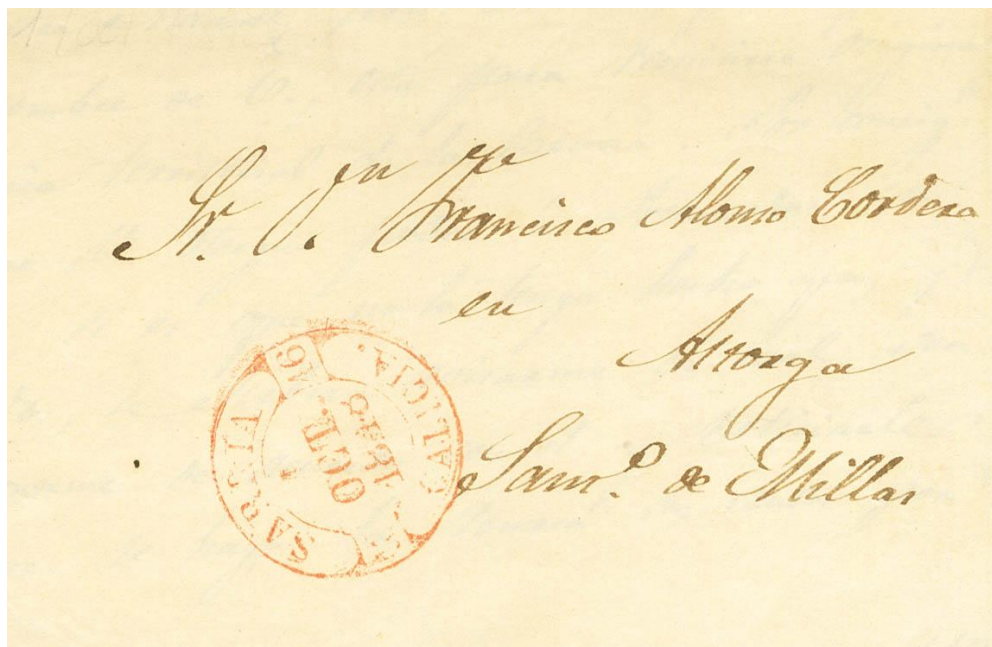 Sr. Dn. Franco
Francisco Alonso Cordero
en
Astorga
Sam.º de Millas
SARRIA
GALICIA.
26
OCT.
1848